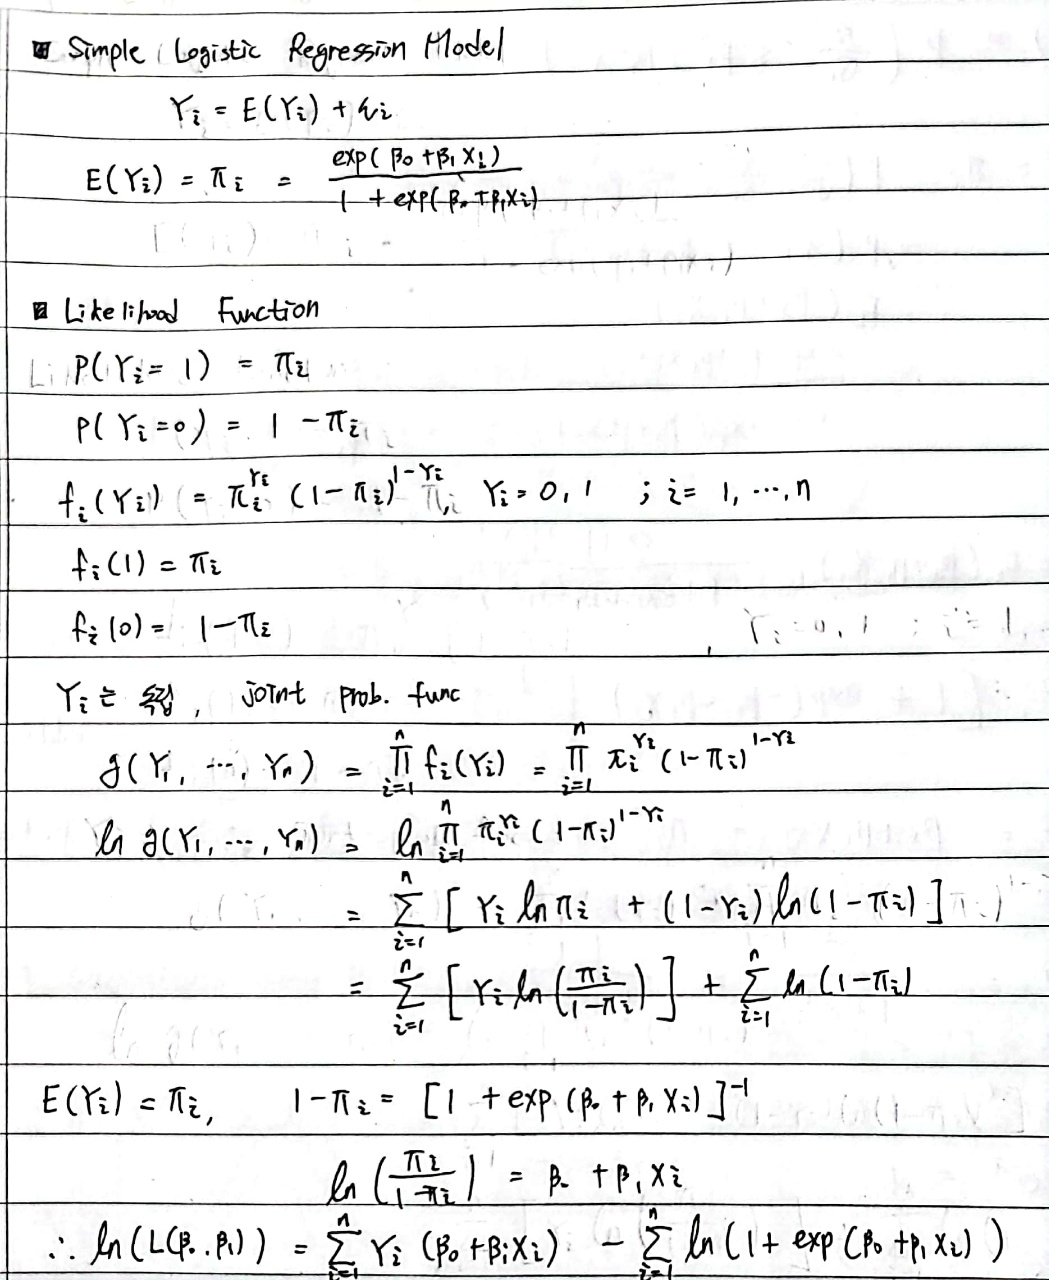 Simple Logistic Regression Model
Yᵢ = E(Yᵢ) + εᵢ
E(Yᵢ) = πᵢ = exp(β₀ + β₁Xᵢ) / 1 + exp(β₀ + β₁Xᵢ)
Likelihood Function
P(Yᵢ = 1) = πᵢ
P(Yᵢ = 0) = 1 - πᵢ
fᵢ(Yᵢ) = πᵢ^Yᵢ (1 - πᵢ)^1-Yᵢ Yᵢ = 0, 1 ; i = 1, ⋯, n
fᵢ(1) = πᵢ
fᵢ(0) = 1 - πᵢ
Yᵢ는 독립, joint prob. func
g(Y₁, ⋯, Yₙ) = ∏ᵢ₌₁ⁿ fᵢ(Yᵢ) = ∏ᵢ₌₁ⁿ πᵢ^Yᵢ (1 - πᵢ)^1-Yᵢ
ln g(Y₁, ⋯, Yₙ) = ln ∏ᵢ₌₁ⁿ πᵢ^Yᵢ (1 - πᵢ)^1-Yᵢ
= Σᵢ₌₁ⁿ [Yᵢ ln πᵢ + (1 - Yᵢ) ln(1 - πᵢ)]
= Σᵢ₌₁ⁿ [Yᵢ ln(πᵢ / 1 - πᵢ)] + Σᵢ₌₁ⁿ ln(1 - πᵢ)
E(Yᵢ) = πᵢ, 1 - πᵢ = [1 + exp(β₀ + β₁Xᵢ)]⁻¹
ln(πᵢ / 1 - πᵢ) = β₀ + β₁Xᵢ
∴ ln(L(β₀, β₁)) = Σᵢ₌₁ⁿ Yᵢ(β₀ + β₁Xᵢ) - Σᵢ₌₁ⁿ ln(1 + exp(β₀ + β₁Xᵢ))